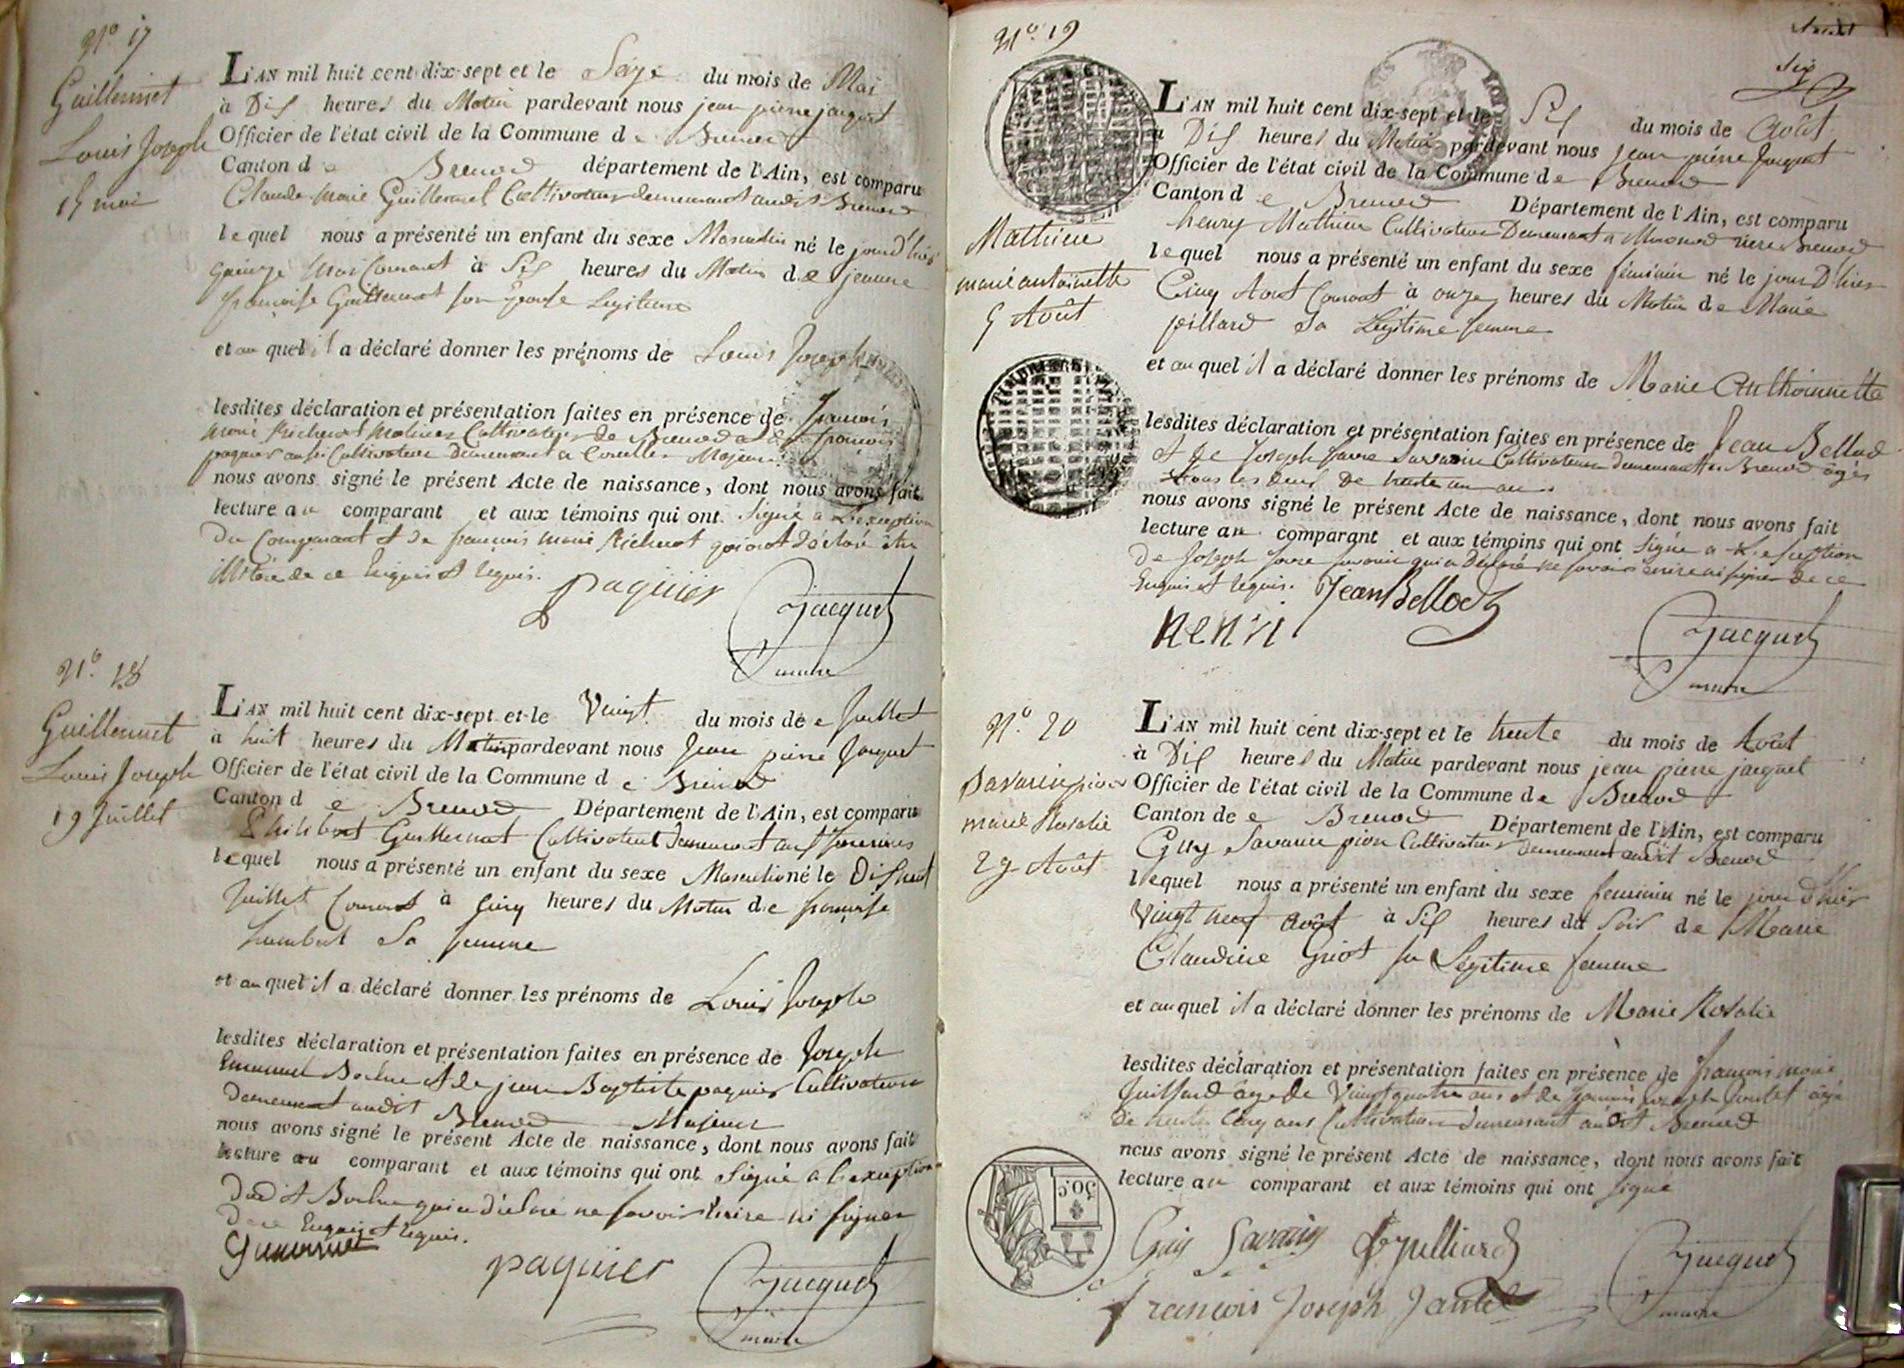 N.° 17
Guillermet
Louis Joseph
15 mai
L'AN mil huit cent dix-sept et le Seize du mois de Mai
à Dix heures du Matin pardevant nous jean pierre jacquet
Officier de l'état civil de la Commune de Brenod
Canton de Brenod département de l'Ain, est comparu
Claude Marie Guillermet Cultivateur demeurant audit Brenod
lequel nous a présenté un enfant du sexe Masculin né le jour d'hier
quinze Mai Courant à Six heures du Matin de jeanne
françoise Guillermet son Epouse Legitime
et au quel il a déclaré donner les prénoms de Louis Joseph
lesdites déclaration et présentation faites en présence de françois
Marie Richerot Cultivateur de Brenod et de françois
paquier aussi Cultivateur Demeurant a Majeurs
nous avons signé le présent Acte de naissance, dont nous avons fait
lecture au comparant et aux témoins qui ont Signé a L'exception
Du Comparant et de françois Marie Richerot qui ont déclaré être
illitéré de ce Enquis et requis.
paquier Jacquet
maire
N.° 18
Guillermet
Louis Joseph
19 Juillet
L'AN mil huit cent dix-sept et le Vingt du mois de Juillet
à huit heures du Matin pardevant nous Jean pierre Jacquet
Officier de l'état civil de la Commune de Brenod
Canton de Brenod Département de l'Ain, est comparu
Philibert Guillermet Cultivateur Demeurant aux
lequel nous a présenté un enfant du sexe Masculin né le Dix huit
Juillet Courant à Cinq heures du Matin de françoise
humbert Sa femme
et au quel il a déclaré donner les prénoms de Louis Joseph
lesdites déclaration et présentation faites en présence de Joseph
Emanuel Bochu et de jean Baptiste paquier Cultivateur
Demeurant audit Brenod Majeurs
nous avons signé le présent Acte de naissance, dont nous avons fait
lecture au comparant et aux témoins qui ont Signé a l'exception
Dudit Bochu qui a déclaré ne savoir Ecrire ni signer
De ce Enquis et requis.
Guillermet paquier Jacquet
maire
N.° 19
Six
Mathieu
marie antoinette
5 Août
L'AN mil huit cent dix-sept et le Six du mois de Août
à Dix heures du Matin pardevant nous jean pierre Jacquet
Officier de l'état civil de la Commune de Brenod
Canton de Brenod Département de l'Ain, est comparu
henry Mathieu Cultivateur Demeurant a riere Brenod
lequel nous a présenté un enfant du sexe féminin né le jour D'hier
Cinq Aout Courant à onze heures du Matin de Marie
pillard Sa Legitime femme
et au quel il a déclaré donner les prénoms de Marie Anthoinette
lesdites déclaration et présentation faites en présence de Jean Bellod
et de Joseph favre Savarin Cultivateurs demeurant a Brenod agés
tous les deux De trente un ans
nous avons signé le présent Acte de naissance, dont nous avons fait
lecture au comparant et aux témoins qui ont Signé a L'exception
De Joseph favre Savarin qui a Déclaré ne savoir écrire ni signer de ce
Enquis et requis. Jean Bellod
Henri Jacquet
maire
N.° 20
Savarin pion
marie Rosalie
29 Août
L'AN mil huit cent dix-sept et le trente du mois de Août
à Dix heures du Matin pardevant nous jean pierre jacquet
Officier de l'état civil de la Commune de Brenod
Canton de Brenod Département de l'Ain, est comparu
Guy Savarin pion Cultivateur demeurant audit Brenod
lequel nous a présenté un enfant du sexe feminin né le jour d'hier
Vingt neuf août à Six heures du Soir de Marie
Claudine Griot sa Légitime femme
et au quel il a déclaré donner les prénoms de Marie Rosalie
lesdites déclaration et présentation faites en présence de françois Marie
Juilliard âgé de Vingt quatre ans et de françois joseph âgé
De trente Cinq ans Cultivateurs demeurant audit Brenod
nous avons signé le présent Acte de naissance, dont nous avons fait
lecture au comparant et aux témoins qui ont signé
30.C.
Guy Savarin Juilliard Jacquet
françois Joseph maire